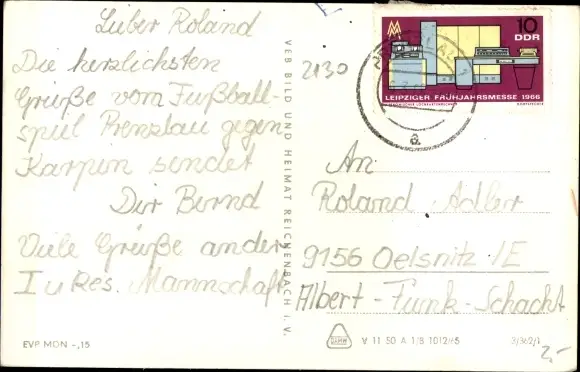 Lieber Roland
Die herzlichsten
Grüße vom Fußball-
spiel Prenzlau gegen
Karpin sendet
Dir Bernd
Viele Grüße an der
I u Res. Mannschaft
EVP MON -,15
VEB BILD UND HEIMAT REICHENBACH I. V.
2130
10
DDR
LEIPZIGER FRÜHJAHRSMESSE 1966
a
An
Roland Adler
9156 Oelsnitz /E
Albert-Funk-Schacht
V 11 50 A 1/B 1012/65
3/362/1
2,-